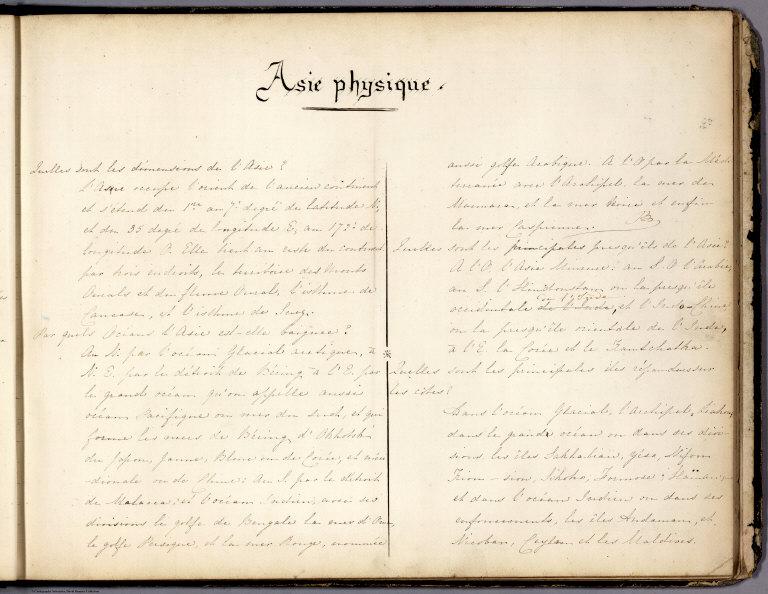 Asie physique.
Quelles sont les dimensions de l'Asie ?
L'Asie occupe l'orient de l'ancien continent
et s'étend du 1er au 7° degré de latitude N,
et du 35 degré de longitude E, au 172° de
longitude O. Elle tient au reste du continent
par trois endroits, le territoire des Monts
Ourals et du fleuve Oural, l'isthme de
Caucase, et l'isthme de Suez.
Par quels Océans l'Asie est-elle baignée ?
Au N. par l'océan Glacial arctique, à
N. E. par le détroit de Béring à l'E. par
le grand océan qu'on appelle aussi
océan Pacifique ou mer du sud, et qui
forme les mers de Béring, d'Okhotsk
du Japon, Jaune, Bleue ou de Corée, et méri-
dionale ou de Chine : Au S. par le détroit
de Malacca, et l'océan Indien, avec ses
divisions le golfe de Bengale la mer d'Om
le golfe Persique, et la mer Rouge, nommée
aussi golfe Arabique. A l'O par la Médi
terranée avec l'Archipel, la mer de
Marmara, et la mer Noire et enfin
la mer Caspienne.
Quelles sont les principales presqu'îles de l'Asie ?
A l'O. l'Asie Mineure : au S. O l'Arabie,
au S. l'Hindoustan, ou la presqu'île
occidentale de l'Inde, et l'Indo-Chine
ou la presqu'île orientale de l'Inde,
à l'E. la Corée et le Kamtschatka.
Quelles sont les principales îles répandues sur
les côtes ?
Dans l'océan Glacial, l'Archipel
dans le grand océan ou dans ses divi-
sions les îles Sakhalian, Yéso, Nifon
Kiou-siou, Sikoko, Formose, Haïnan,
et dans l'océan Indien ou dans ses
enfoncements, les îles Andaman, et
Nicobar, Ceylan et les Maldives.